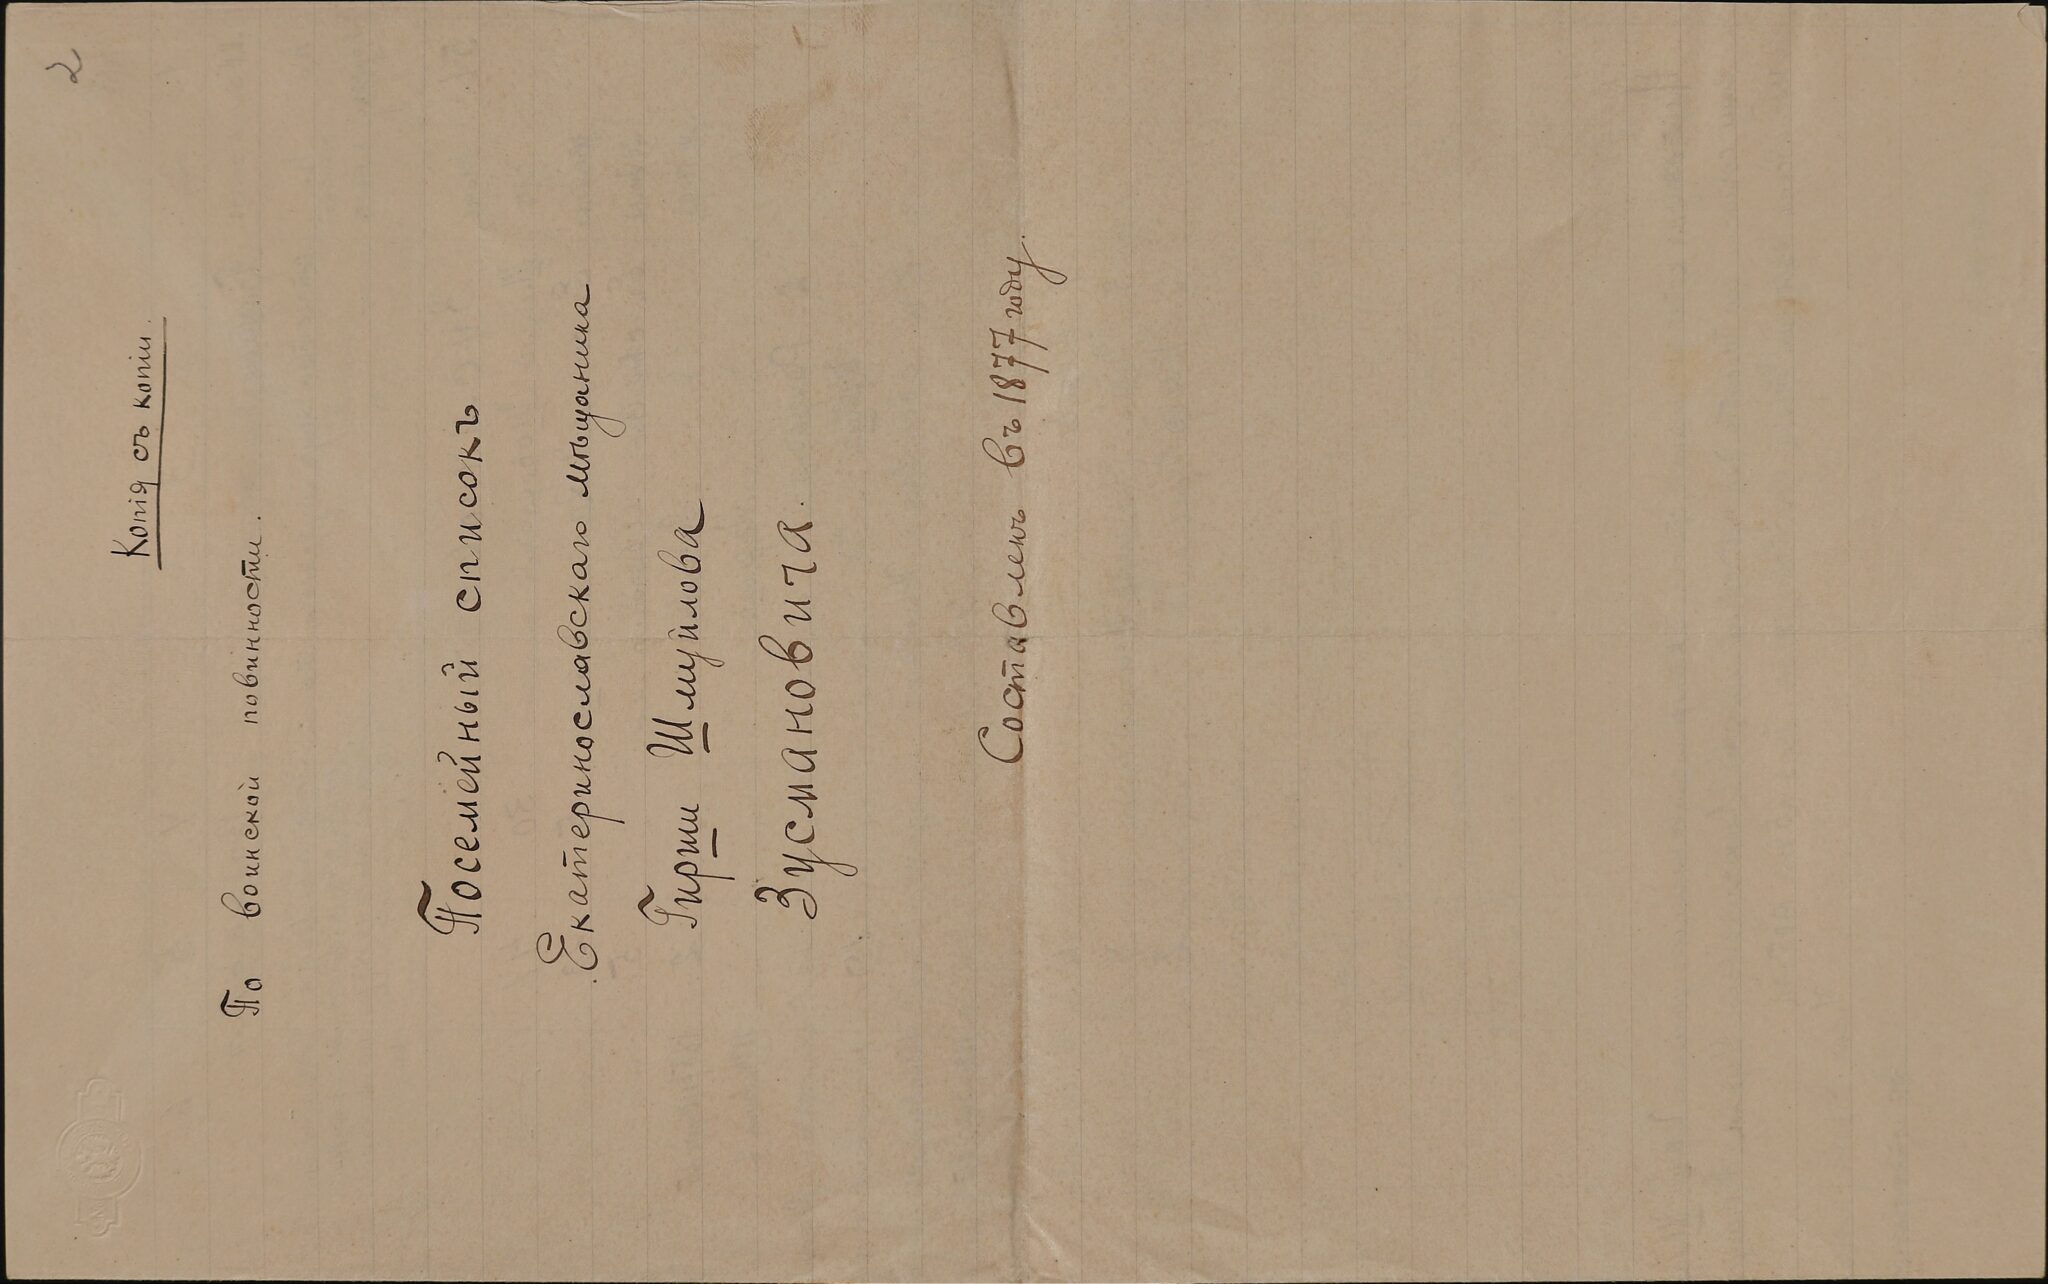 2
Копія съ копіи.
По воинской повинности.
Посемейный списокъ
Екатеринославскаго мѣщанина
Гирши Шмуйлова
Зусмановича.
Составленъ въ 1877 году.